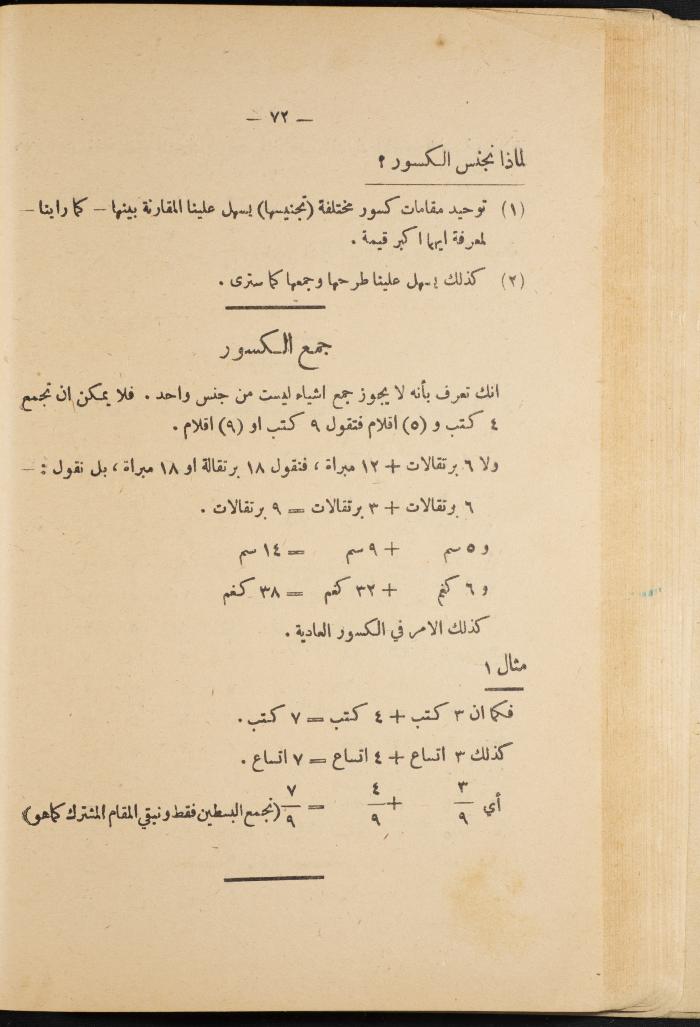 — ٧٢ —
لماذا نجنس الكسور ؟
(١) توحيد مقامات كسور مختلفة (تجنيسها) يسهل علينا المقارنة بينها — كما راينا —
لمعرفة ايهما اكبر قيمة .
(٢) كذلك يسهل علينا طرحها وجمعها كما سترى .
جمع الكسور
انك تعرف بأنه لا يجوز جمع اشياء ليست من جنس واحد . فلا يمكن ان تجمع
٤ كتب و (٥) اقلام فتقول ٩ كتب او (٩) اقلام .
ولا ٦ برتقالات + ١٢ مبراة ، فنقول ١٨ برتقالة او ١٨ مبراة ، بل نقول : —
٦ برتقالات + ٣ برتقالات = ٩ برتقالات .
و ٥ سم + ٩ سم = ١٤ سم
و ٦ كغم + ٣٢ كغم = ٣٨ كغم
كذلك الامر في الكسور العادية .
مثال ١
فكما ان ٣ كتب + ٤ كتب = ٧ كتب .
كذلك ٣ اتساع + ٤ اتساع = ٧ اتساع .
أي ٣/٩ + ٤/٩ = ٧/٩ (نجمع البسطين فقط ونبقي المقام المشترك كما هو)